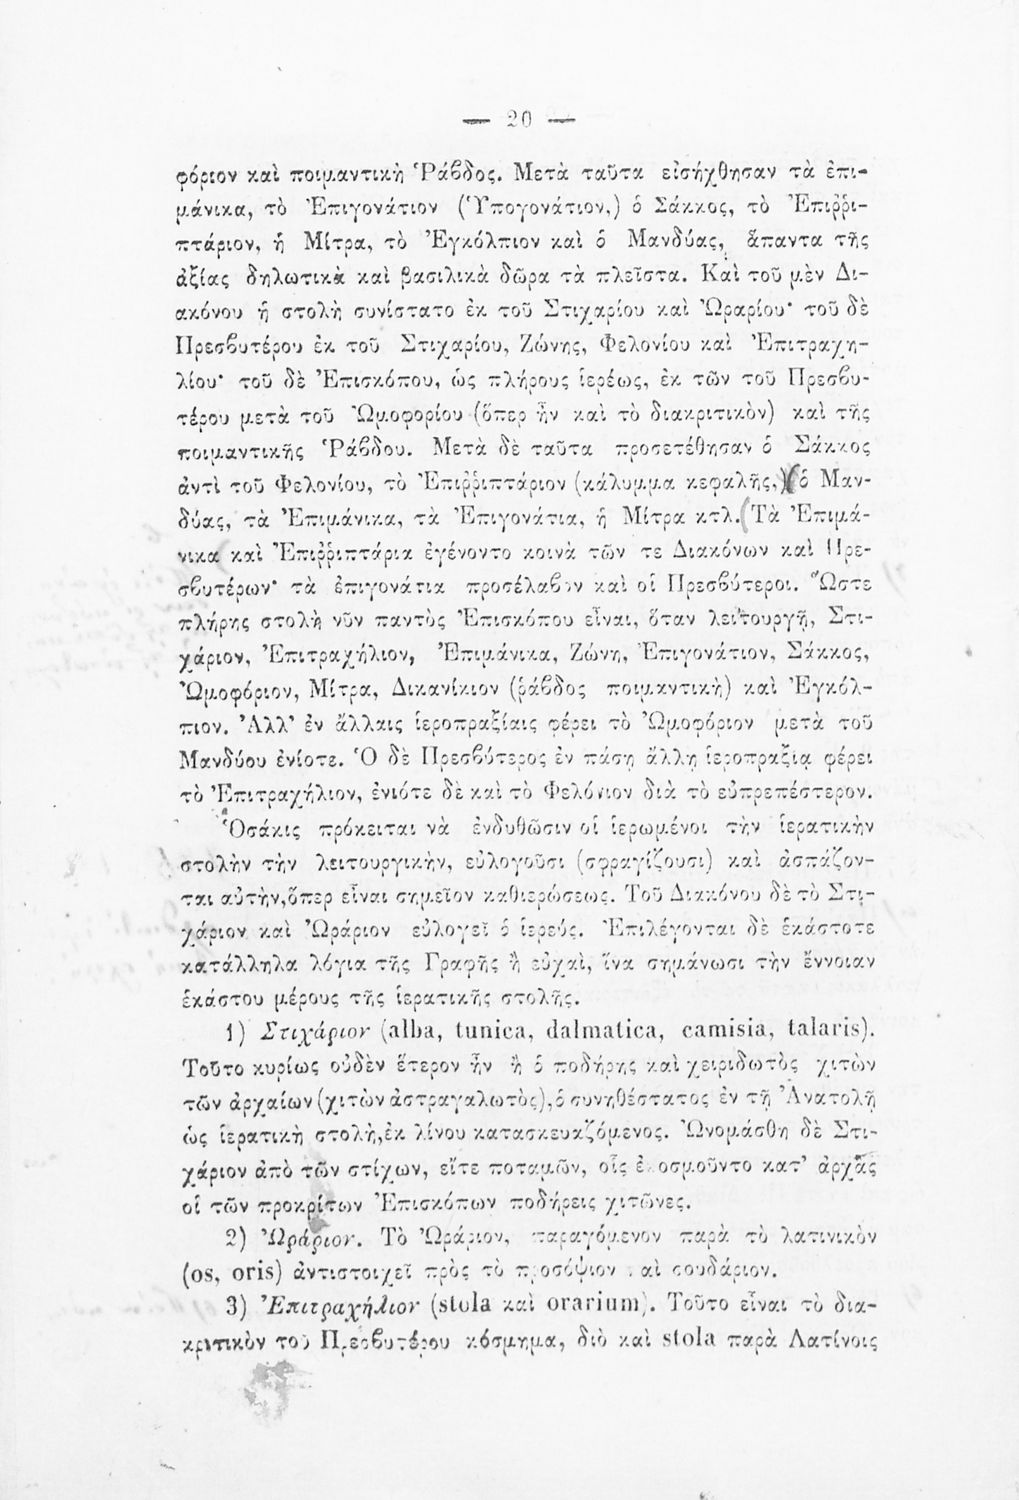 — 20 —
φόριον καὶ ποιμαντικὴ Ῥάβδος. Μετὰ ταῦτα εἰσήχθησαν τὰ ἐπι-
μάνικα, τὸ Ἐπιγονάτιον (Ὑπογονάτιον,) ὁ Σάκκος, τὸ Ἐπιῤῥι-
πτάριον, ἡ Μίτρα, τὸ Ἐγκόλπιον καὶ ὁ Μανδύας, ἅπαντα τῆς
ἀξίας δηλωτικὰ καὶ βασιλικὰ δῶρα τὰ πλεῖστα. Καὶ τοῦ μὲν Δι-
ακόνου ἡ στολὴ συνίστατο ἐκ τοῦ Στιχαρίου καὶ Ὠραρίου· τοῦ δὲ
Πρεσβυτέρου ἐκ τοῦ Στιχαρίου, Ζώνης, Φελονίου καὶ Ἐπιτραχη-
λίου· τοῦ δὲ Ἐπισκόπου, ὡς πλήρους ἱερέως, ἐκ τῶν τοῦ Πρεσβυ-
τέρου μετὰ τοῦ Ὠμοφορίου (ὅπερ ἦν καὶ τὸ διακριτικὸν) καὶ τῆς
ποιμαντικῆς Ῥάβδου. Μετὰ δὲ ταῦτα προσετέθησαν ὁ Σάκκος
ἀντὶ τοῦ Φελονίου, τὸ Ἐπιῤῥιπτάριον (κάλυμμα κεφαλῆς,) ὁ Μαν-
δύας, τὰ Ἐπιμάνικα, τὰ Ἐπιγονάτια, ἡ Μίτρα κτλ. (Τὰ Ἐπιμά-
νικα καὶ Ἐπιῤῥιπτάρια ἐγένοντο κοινὰ τῶν τε Διακόνων καὶ Πρε-
σβυτέρων· τὰ ἐπιγονάτια προσέλαβον καὶ οἱ Πρεσβύτεροι. Ὥστε
πλήρης στολὴ νῦν παντὸς Ἐπισκόπου εἶναι, ὅταν λειτουργῇ, Στι-
χάριον, Ἐπιτραχήλιον, Ἐπιμάνικα, Ζώνη, Ἐπιγονάτιον, Σάκκος,
Ὠμοφόριον, Μίτρα, Δικανίκιον (ῥάβδος ποιμαντικὴ) καὶ Ἐγκόλ-
πιον. Ἀλλ' ἐν ἄλλαις ἱεροπραξίαις φέρει τὸ Ὠμοφόριον μετὰ τοῦ
Μανδύου ἐνίοτε. Ὁ δὲ Πρεσβύτερος ἐν πάσῃ ἄλλῃ ἱεροπραξίᾳ φέρει
τὸ Ἐπιτραχήλιον, ἐνιότε δὲ καὶ τὸ Φελόνιον διὰ τὸ εὐπρεπέστερον.
Ὁσάκις πρόκειται νὰ ἐνδυθῶσιν οἱ ἱερωμένοι τὴν ἱερατικὴν
στολὴν τὴν λειτουργικὴν, εὐλογοῦσι (σφραγίζουσι) καὶ ἀσπάζον-
ται αὐτὴν, ὅπερ εἶναι σημεῖον καθιερώσεως. Τοῦ Διακόνου δὲ τὸ Στι-
χάριον καὶ Ὠράριον εὐλογεῖ ὁ ἱερεύς. Ἐπιλέγονται δὲ ἑκάστοτε
κατάλληλα λόγια τῆς Γραφῆς ἢ εὐχαὶ, ἵνα σημάνωσι τὴν ἔννοιαν
ἑκάστου μέρους τῆς ἱερατικῆς στολῆς.
1) Στιχάριον (alba, tunica, dalmatica, camisia, talaris).
Τοῦτο κυρίως οὐδὲν ἕτερον ἦν ἢ ὁ ποδήρης καὶ χειριδωτὸς χιτὼν
τῶν ἀρχαίων (χιτὼν ἀστραγαλωτὸς), ὁ συνηθέστατος ἐν τῇ Ἀνατολῇ
ὡς ἱερατικὴ στολὴ, ἐκ λίνου κατασκευαζόμενος. Ὠνομάσθη δὲ Στι-
χάριον ἀπὸ τῶν στίχων, εἴτε ποταμῶν, οἷς ἐκοσμοῦντο κατ' ἀρχὰς
οἱ τῶν προκρίτων Ἐπισκόπων ποδήρεις χιτῶνες.
2) Ὠράριον. Τὸ Ὠράριον, παραγόμενον παρὰ τὸ λατινικὸν
(os, oris) ἀντιστοιχεῖ πρὸς τὸ προσόψιον καὶ σουδάριον.
3) Ἐπιτραχήλιον (stola καὶ orarium). Τοῦτο εἶναι τὸ δια-
κριτικὸν τοῦ Πρεσβυτέρου κόσμημα, διὸ καὶ stola παρὰ Λατίνοις